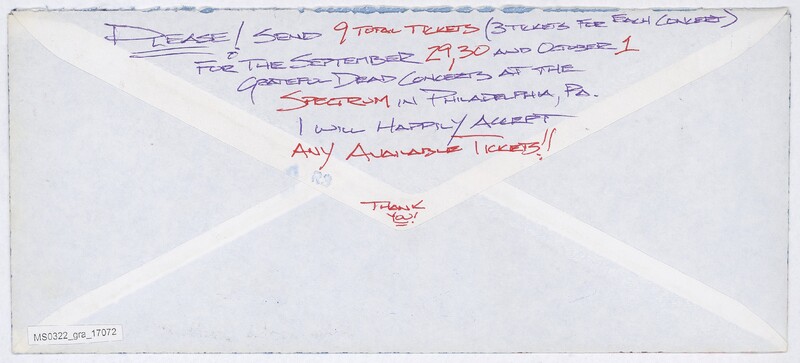 PLEASE! SEND 9 TOTAL TICKETS (3 TICKETS FOR EACH CONCERT)
FOR THE SEPTEMBER 29,30 AND OCTOBER 1
GRATEFUL DEAD CONCERTS AT THE
SPECTRUM IN PHILADELPHIA, PA.
I WILL HAPPILY ACCEPT
ANY AVAILABLE TICKETS!!
THANK
YOU!
MS0322_gra_17072